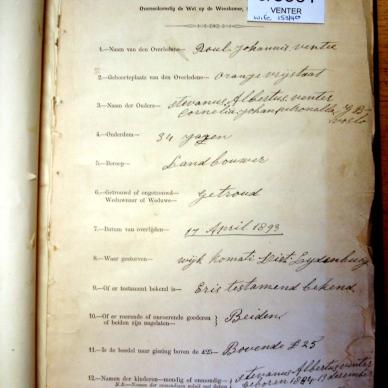 VENTER
Overeenkomstig de Wet op de Weeskamer,
1.—Naam van den Overledene—
Roul Johannis venter
2.—Geboorteplaats van den Overledene—
orange vrijstaat
3.—Namen der Ouders—
stevanus Albertus venter
Cornelia Johan petronella
4.—Ouderdom—
34 Jaaen
5.—Beroep—
Land bouwer
6.—Getrouwd of ongetrouwd—
Weduwnaar of Weduwe—
Getroud
7.—Datum van overlijden—
17 April 1893
8.—Waar gestorven—
wijk komati Dist: Lydenburg
9.—Of er testament bekend is—
Eris testamend bekend
10.—Of er roerende of onroerende goederen
of beiden zijn nagelaten—
Beiden
11.—Is de boedel naar gissing boven de £25—
Bovende £25
12.—Namen der kinderen—mondig of onmondig—
stevanus Albertus venter
Geboren 1884 13 december